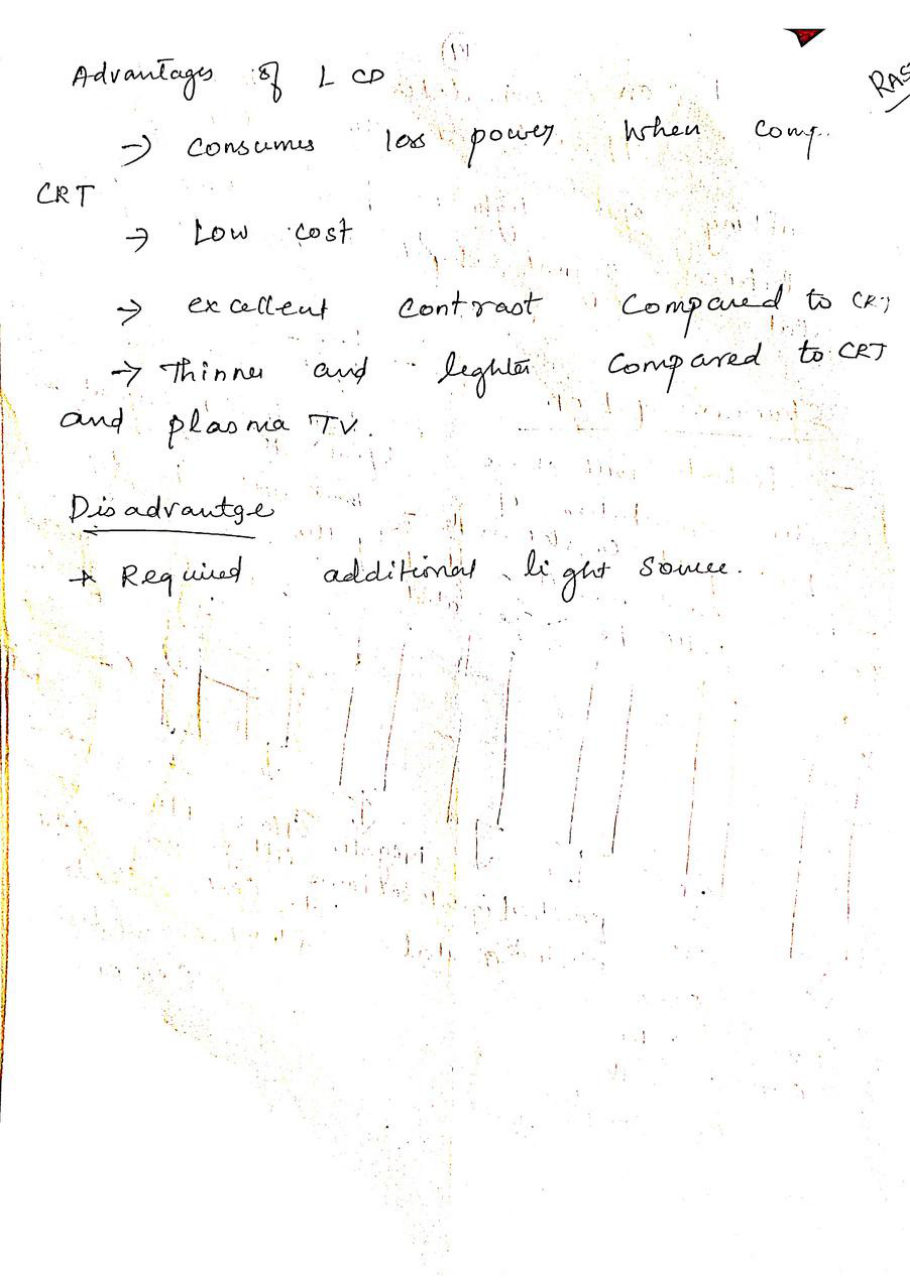 Advantages of LCD
RAS
→ consumes less power when comp..
CRT
→ Low cost
→ excellent contrast compared to CRT
→ Thinner and lighter compared to CRT
and plasma TV.
Disadvantge
→ Required additional light source.